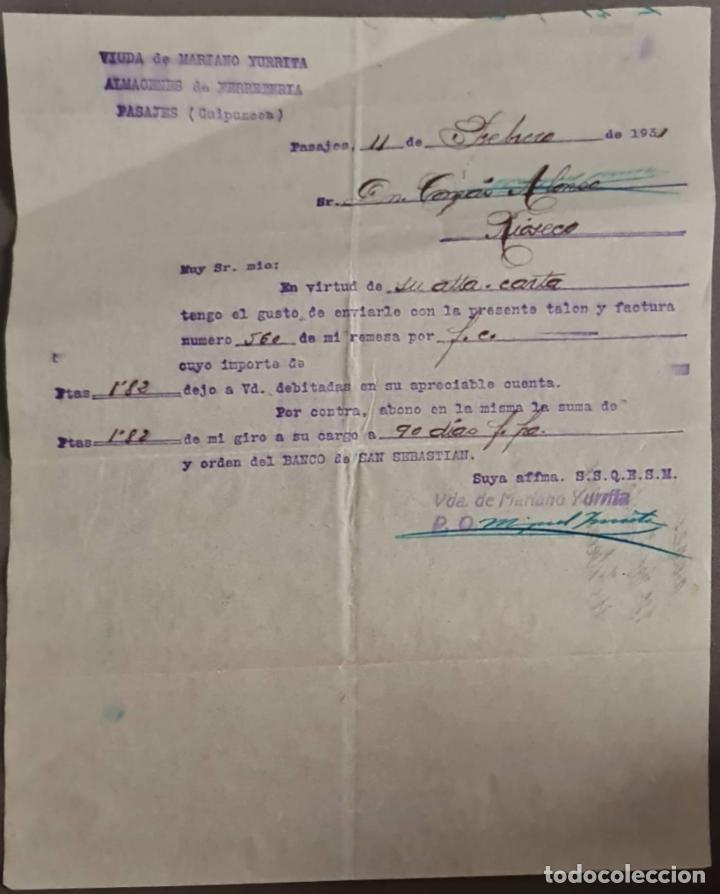 VIUDA de MARIANO YURRITA
ALMACENES de FERRETERIA
PASAJES (Guipuzcoa)
Pasajes, 11 de Febrero de 1931
Sr. Dn. Alonso
Rioseco
Muy Sr. mio:
En virtud de su atta. carta
tengo el gusto de enviarle con la presente talon y factura
numero 560 de mi remesa por f.c.
cuyo importe de
Ptas. 1'82 dejo a Vd. debitadas en su apreciable cuenta.
Por contra, abono en la misma la suma de
Ptas 1'82 de mi giro a su cargo a 90 días f. fa.
y orden del BANCO de SAN SEBASTIAN.
Suya affma. S.S.Q.E.S.M.
Vda. de Mariano Yurrita
P. O. Miguel Yurrita
todocoleccion